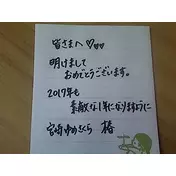 皆さまへ♡♡
明けまして
おめでとうございます。
2017年も
素敵な1年になりますように
椿